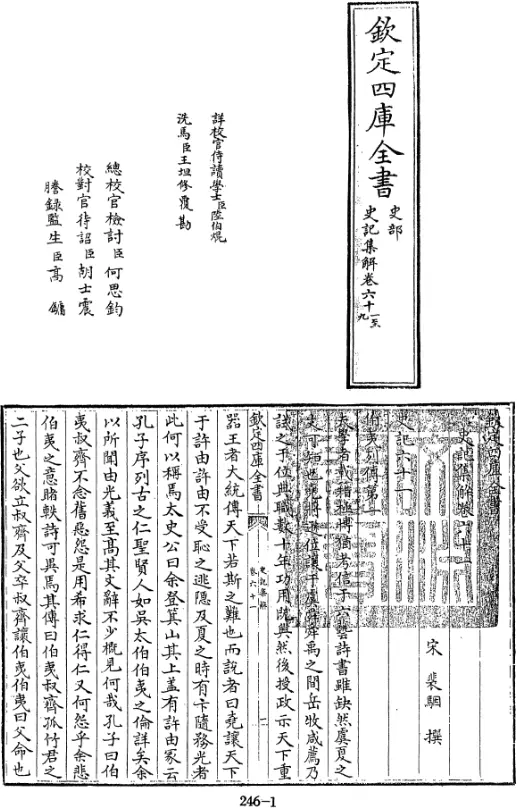 欽定四庫全書
史部
史記集解卷六十一至
九
詳校官侍讀學士臣陸伯焜
洗馬臣王坦修覆勘
總校官檢討臣何思鈞
校對官待詔臣胡士震
謄錄監生臣高鏞
欽定四庫全書
史記集解卷六十一
宋 裴駰 撰
史記六十一
伯夷列傳第一
夫學者載籍極博猶考信于六藝詩書雖缺然虞夏之
文可知也堯將遜位讓于虞舜舜禹之間岳牧咸薦乃
試之于位典職數十年功用既興然後授政示天下重
欽定四庫全書
史記集解
卷六十一
一
器王者大統傳天下若斯之難也而說者曰堯讓天下
于許由許由不受恥之逃隱及夏之時有卞隨務光者
此何以稱焉太史公曰余登箕山其上蓋有許由冢云
孔子序列古之仁聖賢人如吳太伯伯夷之倫詳矣余
以所聞由光義至高其文辭不少概見何哉孔子曰伯
夷叔齊不念舊惡怨是用希求仁得仁又何怨乎余悲
伯夷之意睹軼詩可異焉其傳曰伯夷叔齊孤竹君之
二子也父欲立叔齊及父卒叔齊讓伯夷伯夷曰父命也
246-1